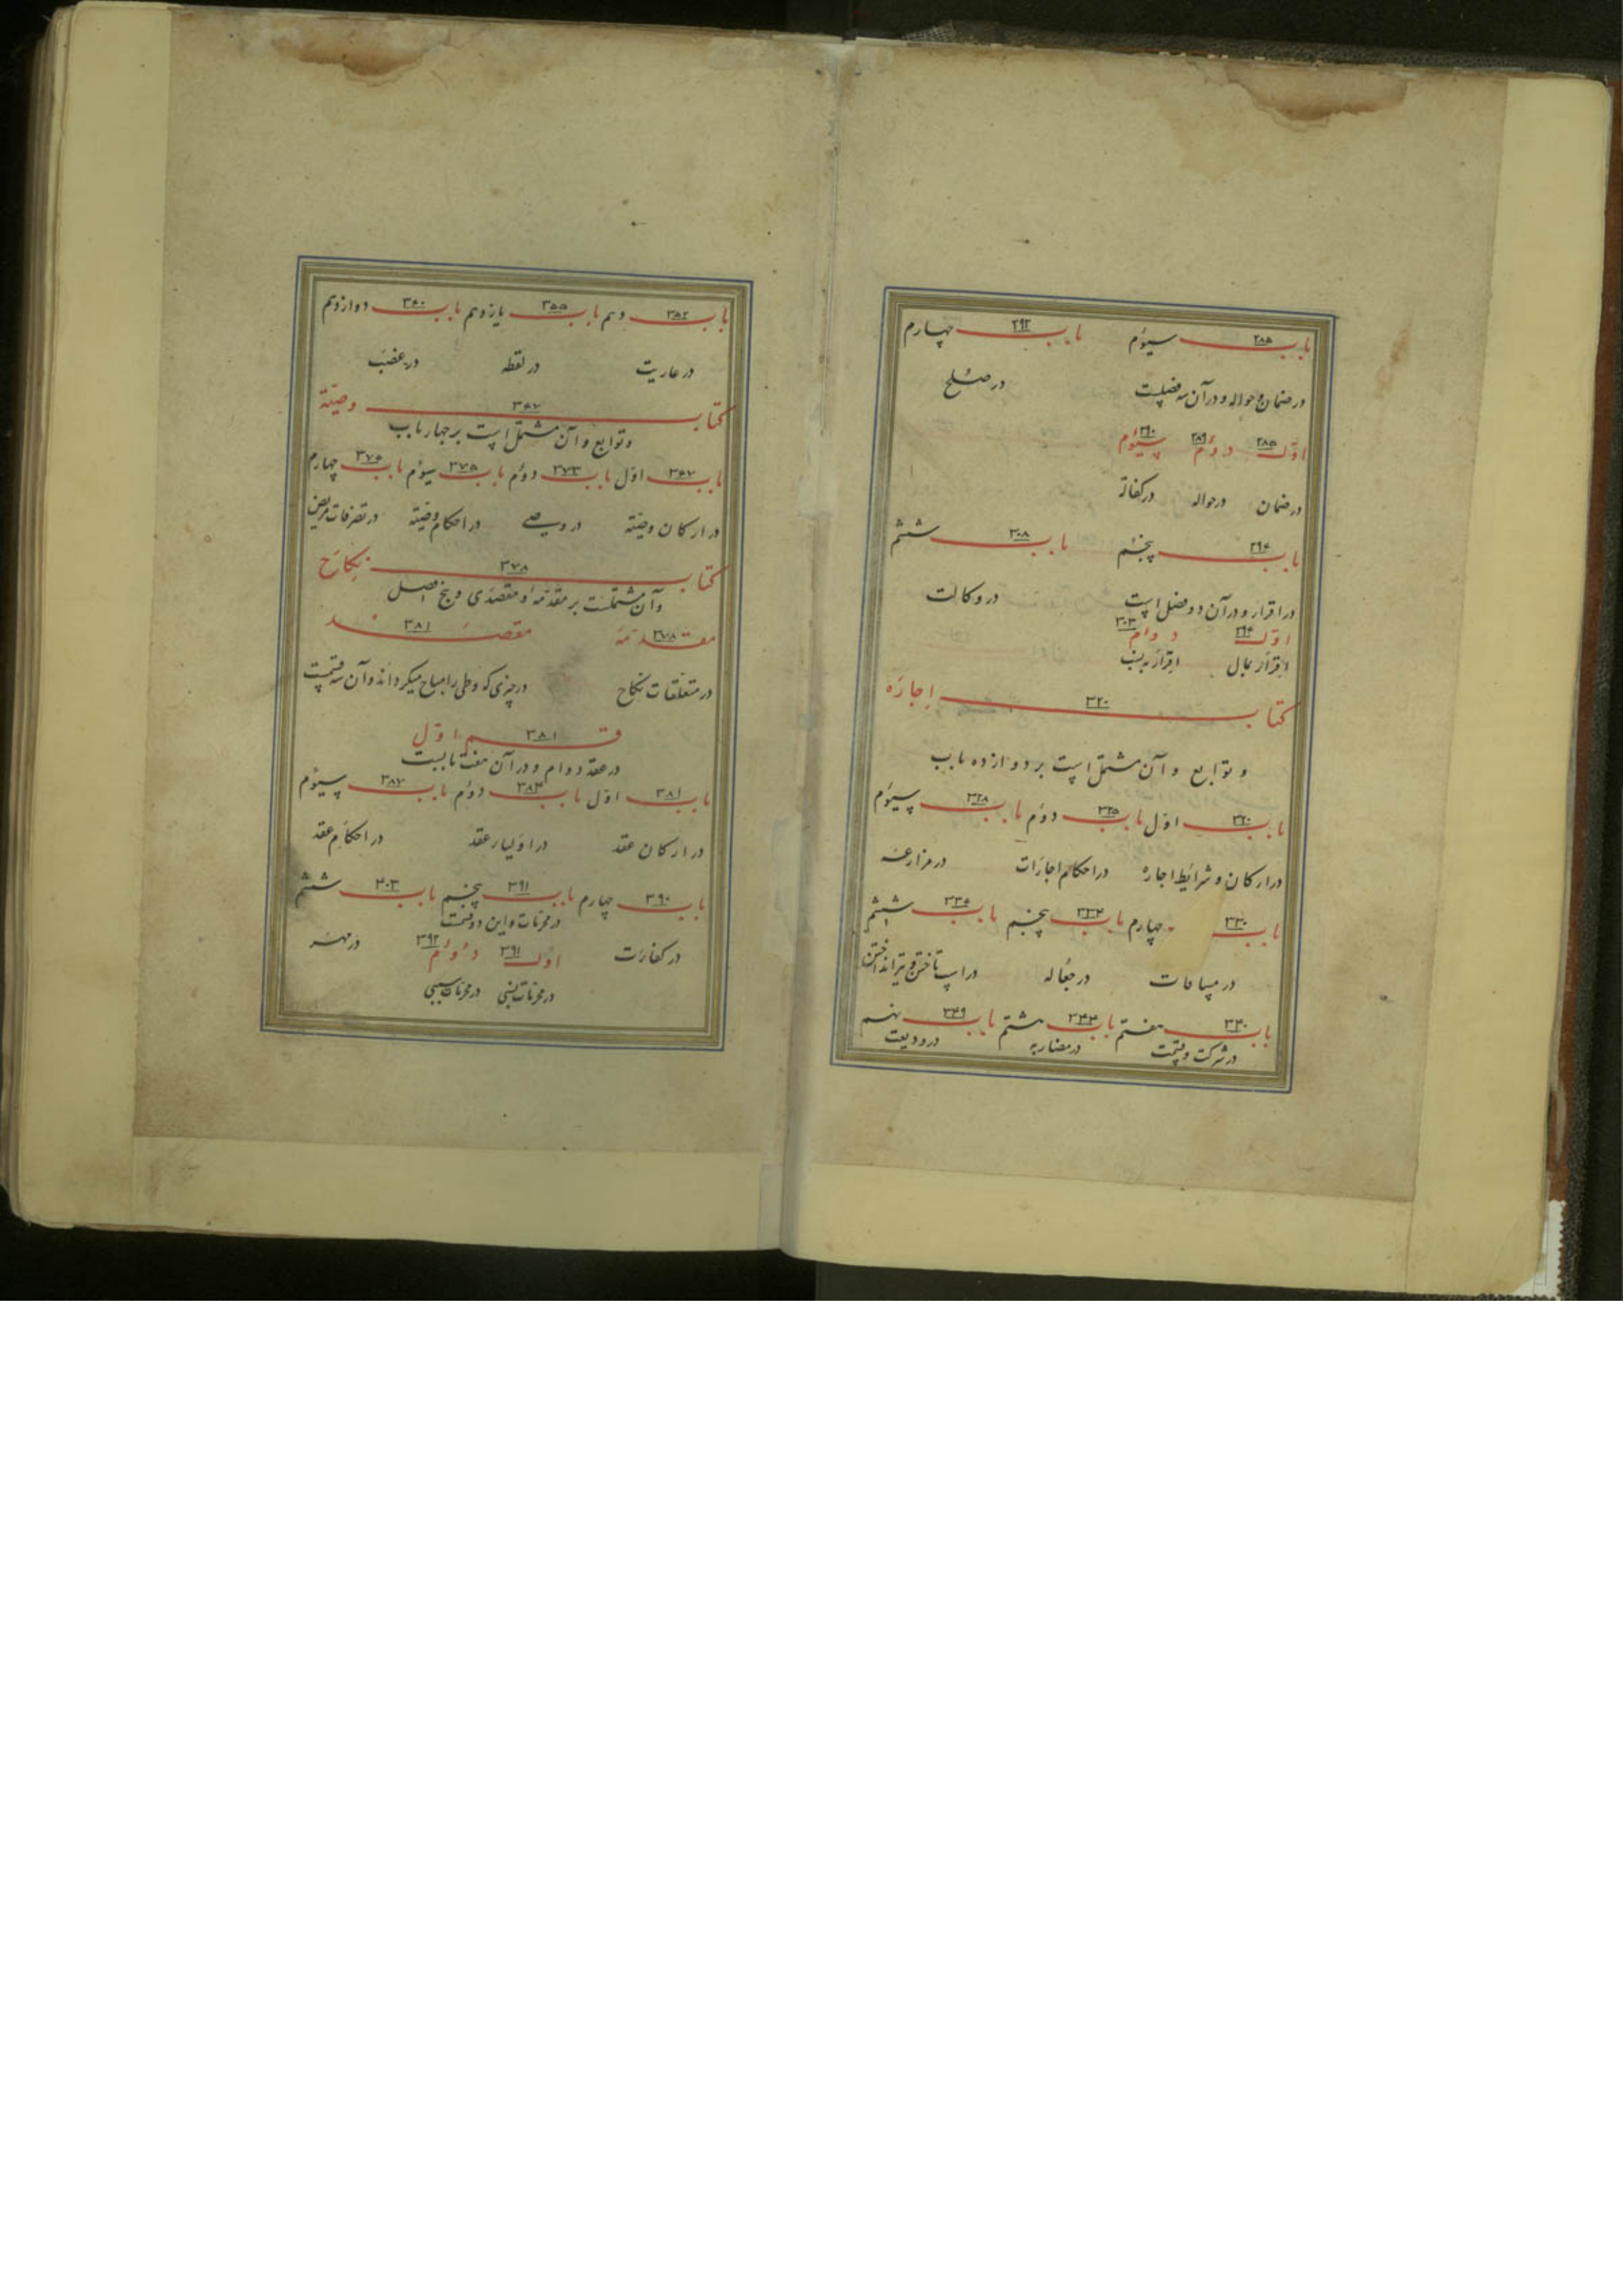 باب ۲۸۵ سیوم باب ۲۹۲ چهارم
در ضمان و حواله و در آن سه فصلست در صلح
اول ۲۸۵ دوم ۲۸۹ سیوم ۲۹۰
در ضمان در حواله در کفالة
باب ۲۹۴ پنجم باب ۳۰۸ ششم
در اقرار و در آن دو فصل است در وکالت
اول ۲۹۴ دوم ۳۰۳
اقرار بمال اقرار به نسب
کتاب ۳۲۰ اجاره
و توابع و آن مشتمل است بر دوازده باب
باب ۳۲۰ اول باب ۳۲۵ دوم باب ۳۲۸ سیوم
در ارکان و شرائط اجاره در احکام اجارات در مزارعه
باب ۳۳۰ چهارم باب ۳۳۳ پنجم باب ۳۳۶ ششم
در مساقات در جعاله در اسب تاختن و تیر انداختن
باب ۳۴۰ هفتم باب ۳۴۳ هشتم باب ۳۴۹ نهم
در شرکت و قسمت در مضاربه در ودیعت
باب ۳۵۲ دهم باب ۳۵۵ یازدهم باب ۳۶۰ دوازدهم
در عاریت در لقطه در غصب
کتاب ۳۶۷ وصیّة
و توابع و آن مشتمل است بر چهار باب
باب ۳۶۷ اول باب ۳۷۳ دوم باب ۳۷۵ سیوم باب ۳۷۶ چهارم
در ارکان وصیّة در وصی در احکام وصیّة در تصرفات مریض
کتاب ۳۷۸ نکاح
و آن مشتملست بر مقدمه و مقصدی و پنج اصل
مقدمه ۳۷۸ مقصد ۳۸۱
در متعلقات نکاح در چیزی که وطی را مباح میگرداند و آن سه قسمست
قسم ۳۸۱ اول
در عقد دوام و در آن هفت بابست
باب ۳۸۱ اول باب ۳۸۳ دوم باب ۳۸۷ سیوم
در ارکان عقد در اولیاء عقد در احکام عقد
باب ۳۹۰ چهارم باب ۳۹۱ پنجم باب ۴۰۳ ششم
در محرمات و این دو قسمت
در کفارت اول ۳۹۱ دوم ۳۹۲ در مهر
در محرمات نسبی در محرمات سببی